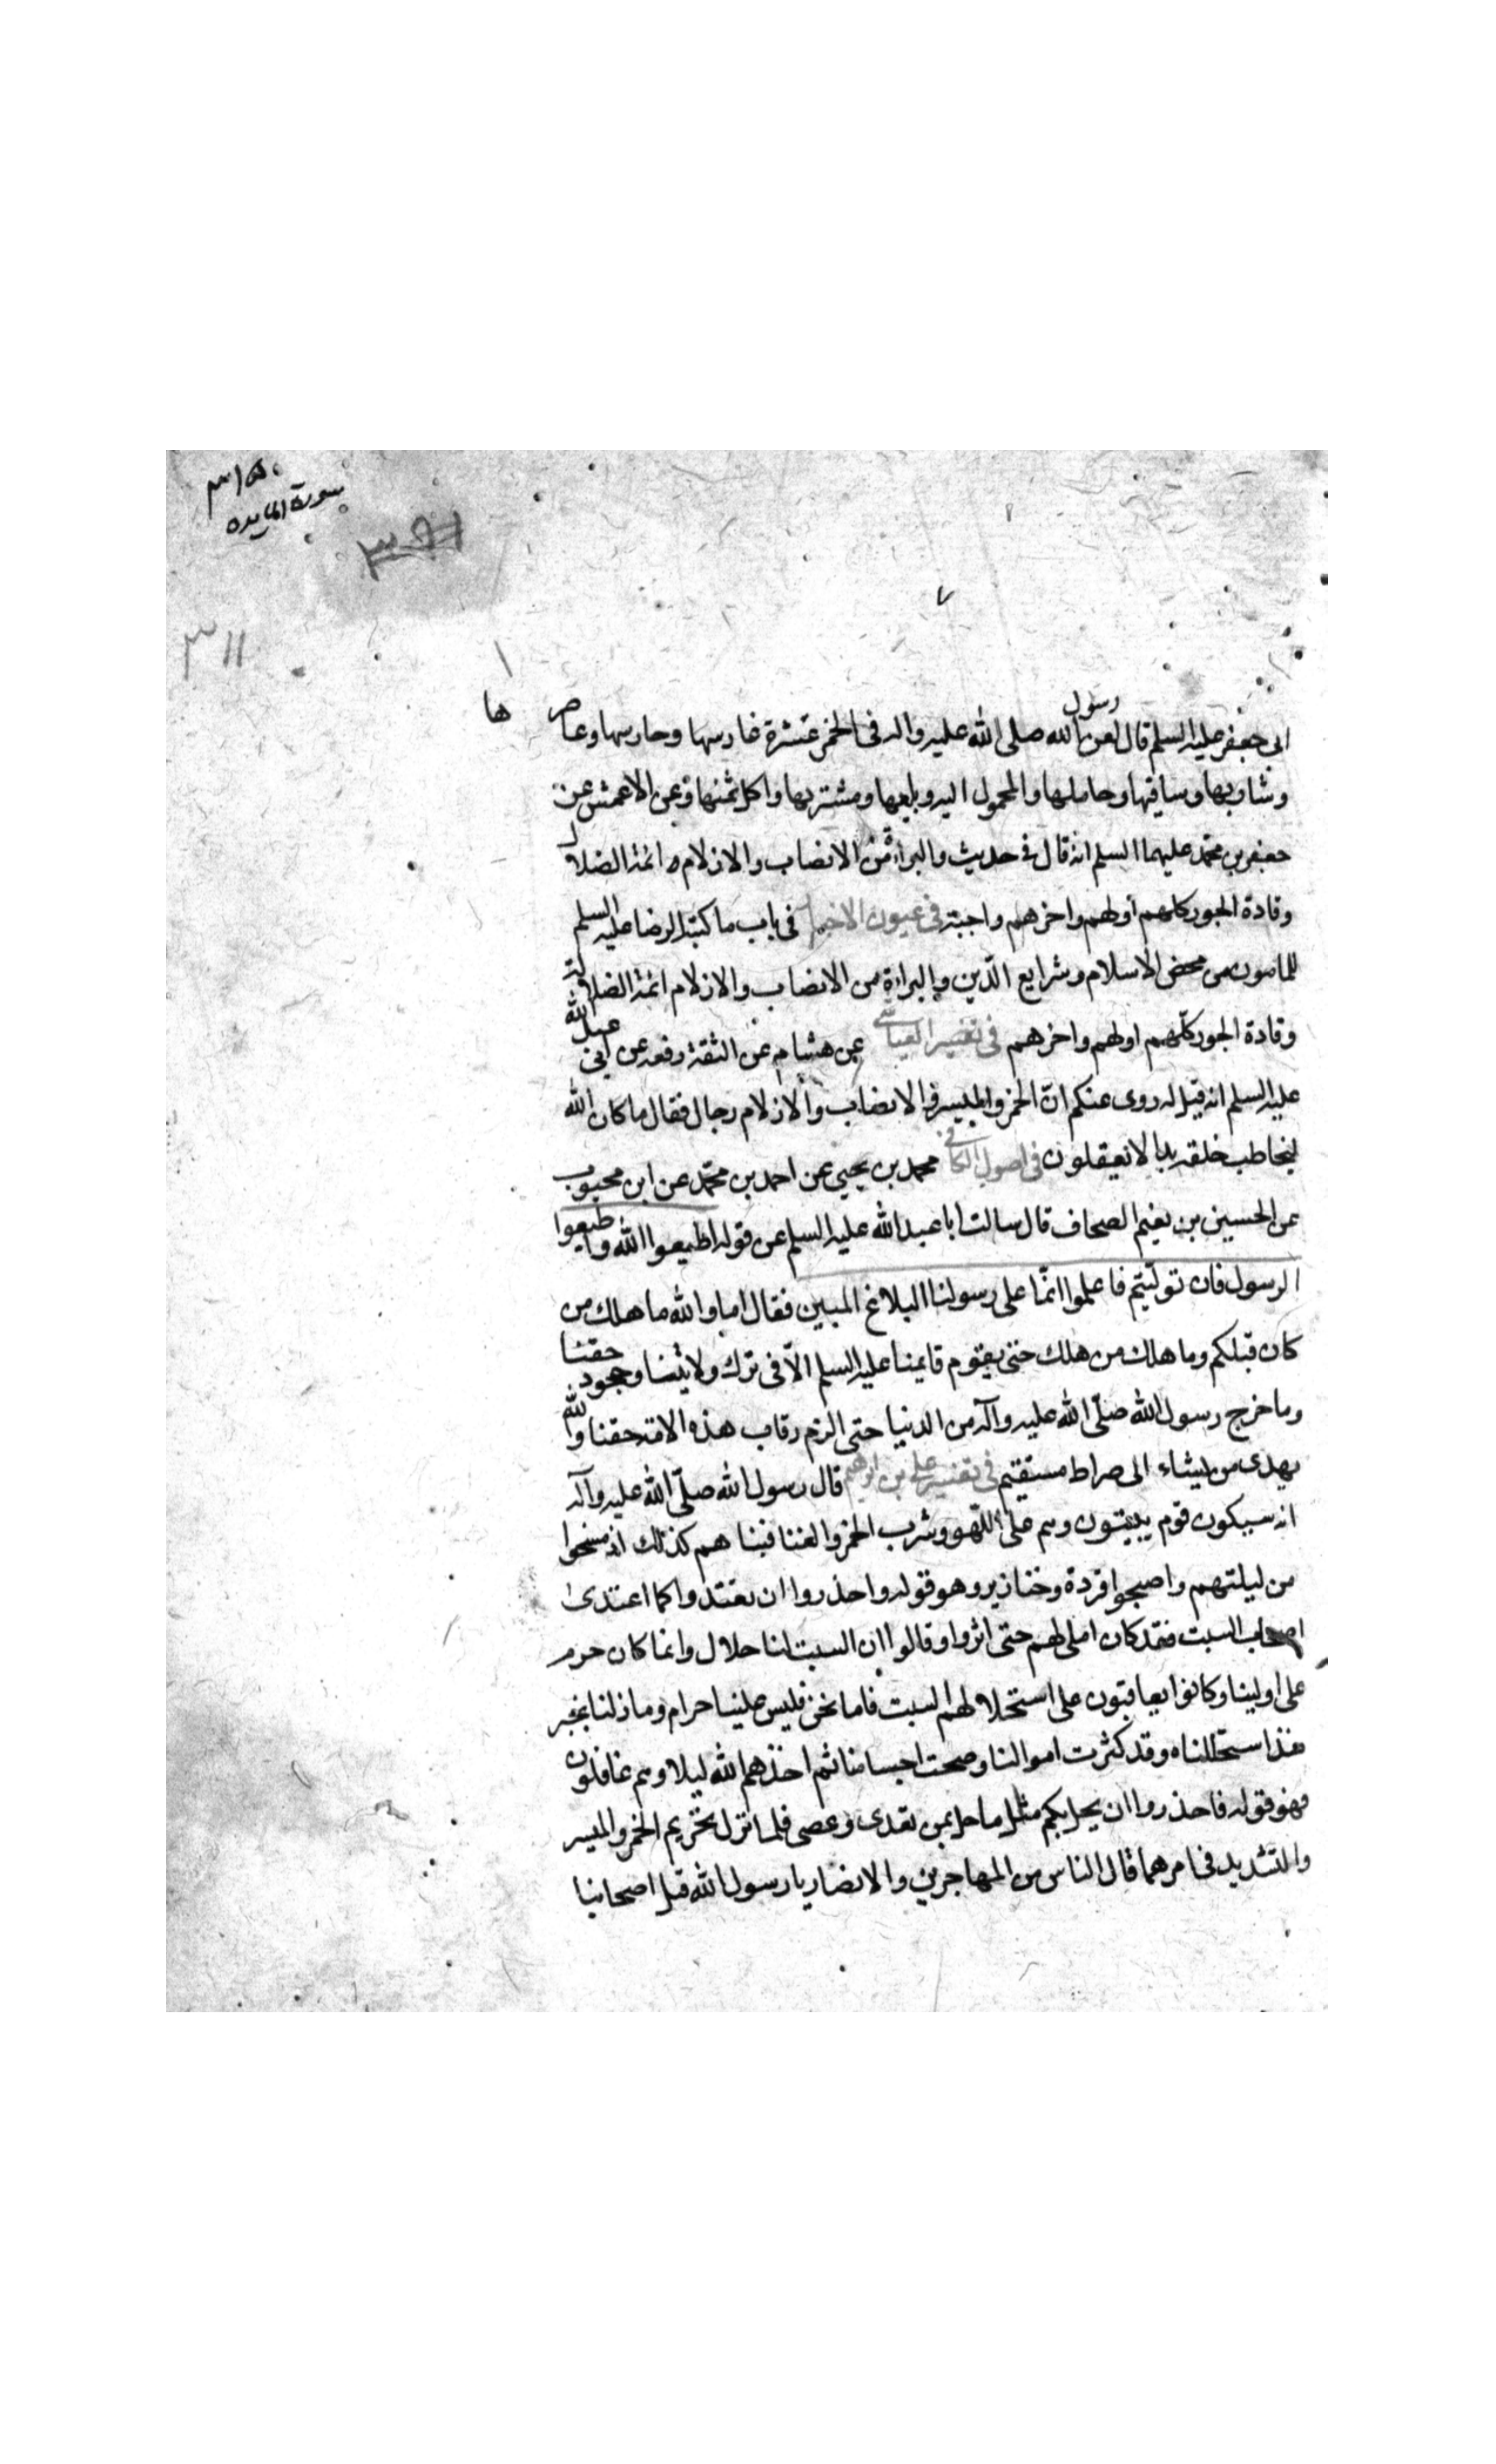 سورة المايده
٣١١
رسول
ابى جعفر عليه السلم قال لعن الله صلى الله عليه واله فى الخمر عشرة غارسها وحارسها وعاصرها
وشاربها وساقيها وحاملها والمحمول اليه وبايعها ومشتريها واكل ثمنها وعن الاعمش عن
جعفر بن محمد عليهما السلم انه قال فى حديث والبراءة من الانصاب والازلام ائمة الضلال
وقادة الجور كلهم اولهم واخرهم واجبة فى عيون الاخبار فى باب ما كتبه الرضا عليه السلم
للمامون من محض الاسلام وشرايع الدّين والبراءة من الانصاب والازلام ائمة الضلالة
وقادة الجور كلّهم اولهم واخرهم فى تفسير العياشى عن هشام عن الثقة رفعه عن ابى عبد الله
عليه السلم انه قيل له روى عنكم انّ الخمر والميسر والانصاب والازلام رجال فقال ما كان الله
ليخاطب خلقه بما لا تعقلون فى اصول الكافى محمد بن يحيى عن احمد بن محمّد عن ابن محبوب
عن الحسين بن نعيم الصحاف قال سالت ابا عبد الله عليه السلم عن قوله اطيعوا الله واطيعوا
الرسول فان تولّيتم فاعلموا انّما على رسولنا البلاغ المبين فقال اما والله ما هلك من
كان قبلكم وما هلك من هلك حتى يقوم قايمنا عليه السلم الّا فى ترك ولايتنا وجحود حقنا
وما خرج رسول الله صلّى الله عليه وآله من الدنيا حتى الزم رقاب هذه الامة حقنا والله
يهدى من يشاء الى صراط مستقيم فى تفسير على بن ابرهيم قال رسول الله صلّى الله عليه وآله
انه سيكون قوم يبيتون وهم على اللّهو وشرب الخمر والغنا فبنا هم كذلك اذ مسخوا
من ليلتهم واصبحوا قردة وخنازير وهو قوله واحذروا ان تعتدوا كما اعتدى
اصحاب السبت فقد كان املى لهم حتى اثروا وقالوا ان السبت لنا حلال وانما كان حرم
على اولينا وكانوا يعاقبون على استحلالهم السبت فاما نحن فليس علينا حرام وما زلنا بخير
منذ استحللناه وقد كثرت اموالنا وصحت اجسامنا ثم اخذهم الله ليلا وهم غافلون
فهو قوله فاحذروا ان يحل بكم مثل ما حل بمن تعدى وعصى فلما نزل تحريم الخمر والميسر
والتشديد فى امرهما قال الناس من المهاجرين والانصار يا رسول الله قتل اصحابنا